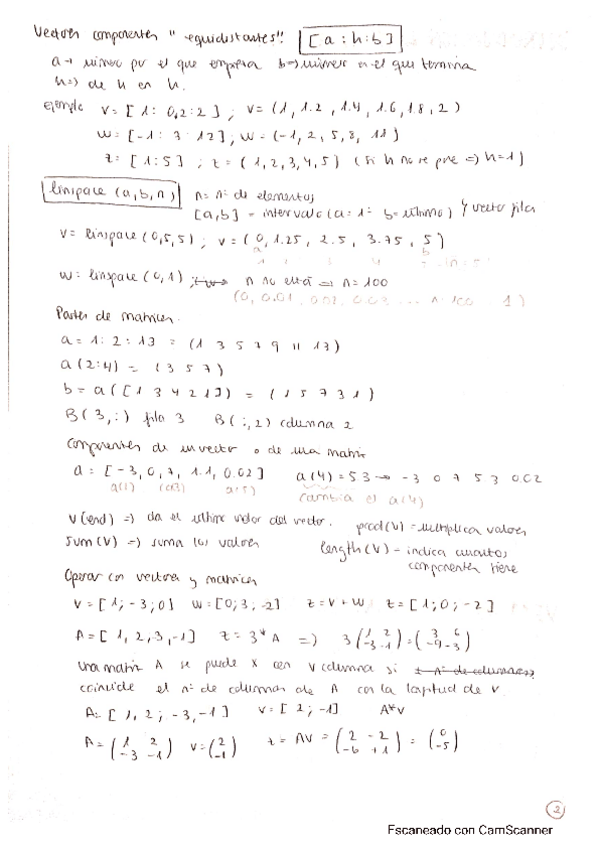 Vectores componentes "equidistantes": [a:h:b]
a → número por el que empieza b → número en el que termina
h => de h en h.
ejemplo v = [1: 0,2:2] ; v = (1, 1.2, 1.4, 1.6, 1.8, 2)
w = [-1: 3: 12] ; w = (-1, 2, 5, 8, 11)
z = [1:5] ; z = (1, 2, 3, 4, 5) (si h no se pone => h=1)
linspace (a,b,n) n = nº de elementos
[a,b] = intervalo (a = 1º b = último) y vector fila
v = linspace (0,5,5) ; v = (0, 1.25, 2.5, 3.75, 5)
a b
1 3 4
w = linspace (0,1) ; n no está => n = 100
(0, 0.01, 0.02, 0.03 ... n=100 1)
Partes de matrices.
a = 1:2:13 = (1 3 5 7 9 11 13)
a(2:4) = (3 5 7)
b = a([1 3 4 2 1]) = (1 5 7 3 1)
B(3,:) fila 3 B(:,2) columna 2
Componentes de un vector o de una matriz
a = [-3, 0, 7, 1.1, 0.02] a(4) = 53 → -3 0 7 5.3 0.02
a(1) (a3) a(5) cambia el a(4)
v(end) => da el último valor del vector. prod(v) = multiplica valores
sum(v) => suma los valores length(v) - indica cuantos
componentes tiene
Operar con vectores y matrices
v = [1; -3; 0] w = [0; 3; -2] z = v + w z = [1; 0; -2]
A = [1, 2, 3, -1] z = 3* A => 3(1 2 -3 -1) = (3 6 -9 -3)
Una matriz A se puede x con v columna si
coincide el nº de columnas de A con la longitud de v.
A = [1, 2; -3, -1] v = [2; -1] A*v
A = (1 2 -3 -1) v = (2 -1) z = AV = (2 -2 -6 +1) = (0 -5)
2
Escaneado con CamScanner